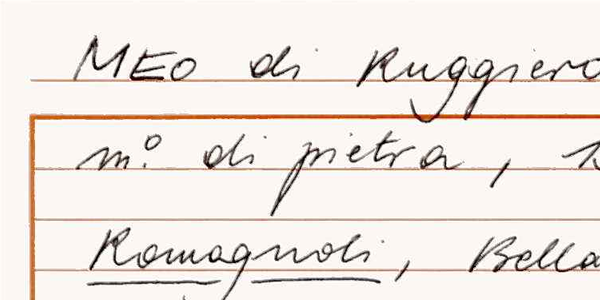 MEO di Ruggiero
m.° di pietra,
Romagnoli, Bella